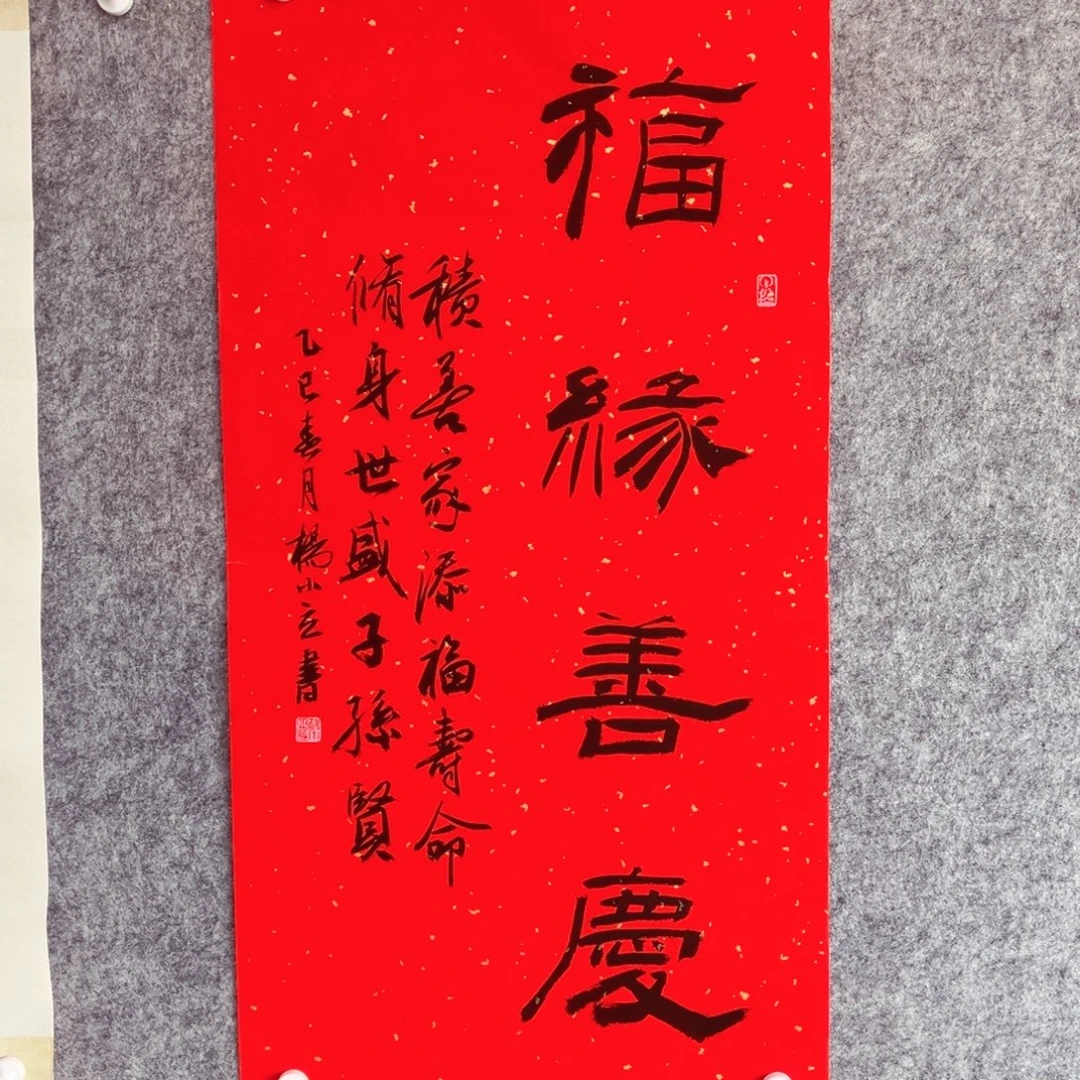 福緣善慶
積善家添福壽命
脩身世盛子孫賢
乙巳春月楊小立書